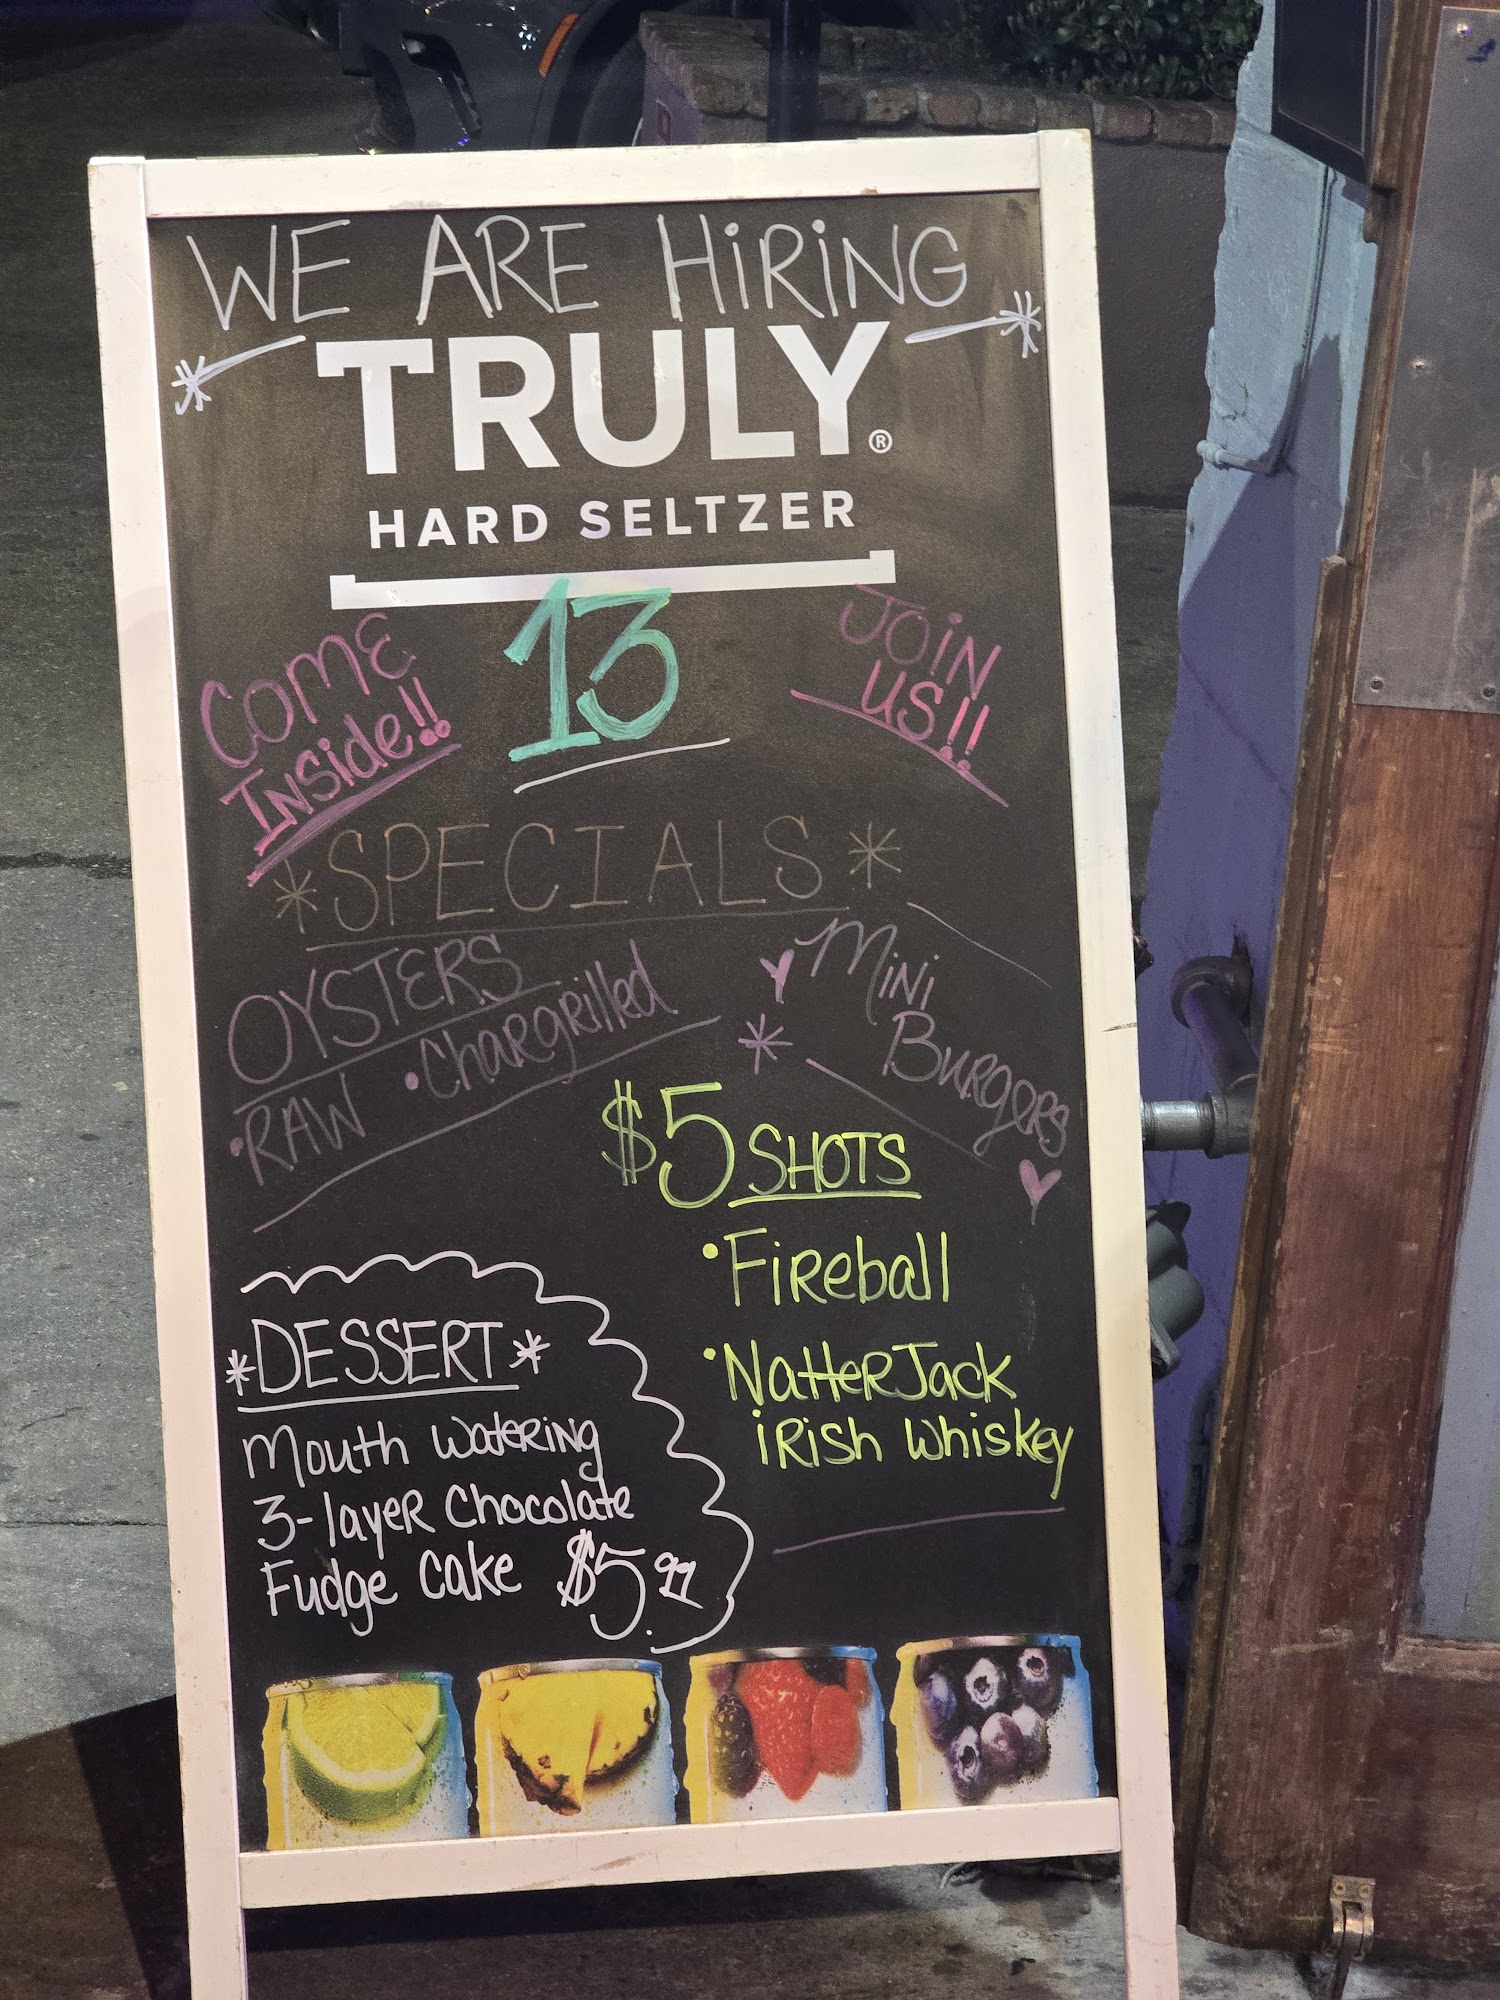 WE ARE HiRiNG
TRULY®
HARD SELTZER
13
COME
INSide!!
JOiN
US!!
*SPECIALS*
OYSTERS
•RAW •Chargrilled
Mini
Burgers
$5 SHOTS
•Fireball
•Natterjack
iRish Whiskey
*DESSERT*
Mouth watering
3-layer Chocolate
Fudge Cake $5.99